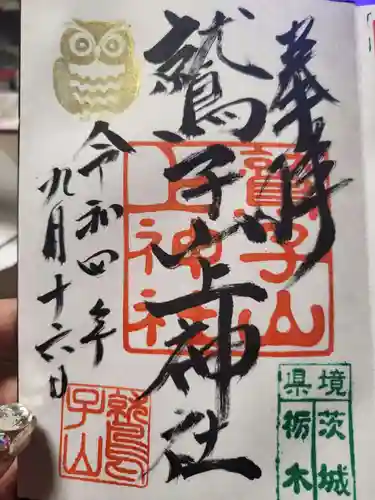 奉拝
鷲子山上神社
令和四年
九月十六日
鷲子山
上神社
鷲
子山
境
茨城
県
栃木